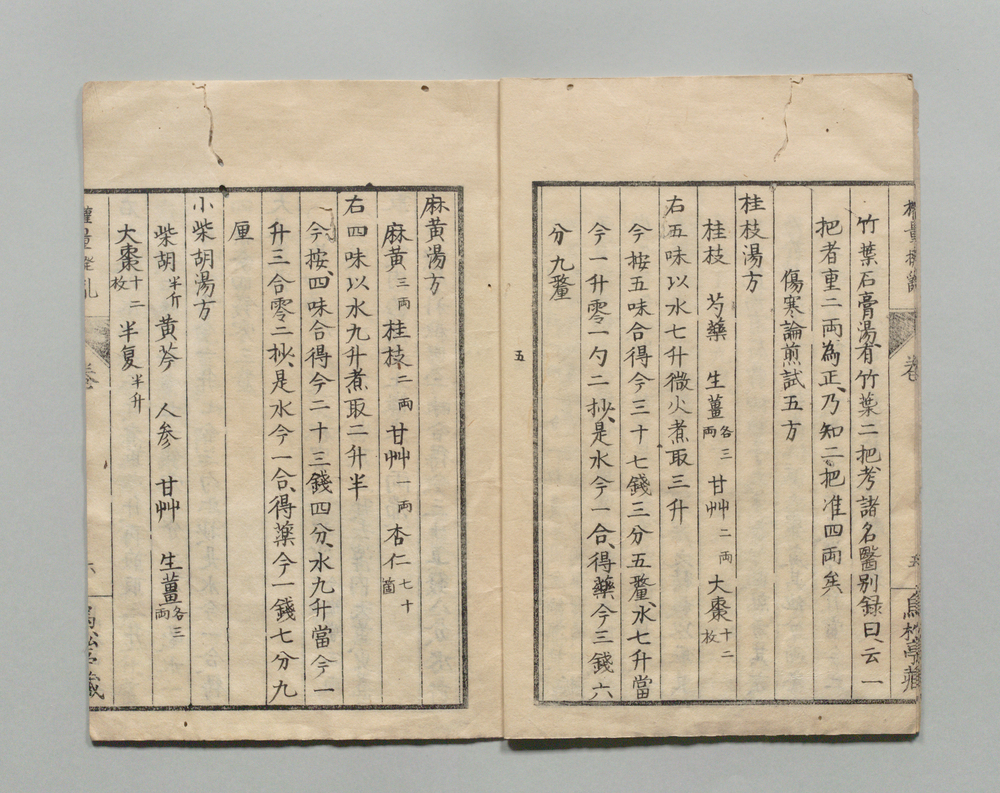 竹葉石膏湯有竹葉二把考諸名醫別録曰、云一
把者重二両為正、乃知二把准四両矣
傷寒論煎試五方
桂枝湯方
桂枝 芍藥 生薑各三両 甘艸二両 大棗十二枚
右五味以水七升微火煮取三升
今按五味合得今三十七錢三分五釐、水七升當
今一升零一勺二抄、是水今一合、得藥今三錢六
分九釐
五
麻黄湯方
麻黄三両 桂枝二両 甘艸一両 杏仁七十箇
右四味以水九升煮取二升半
今按、四味合得今二十三錢四分、水九升當今一
升三合零二抄、是水今一合、得藥今一錢七分九
厘
小柴胡湯方
柴胡半斤 黄芩 人参 甘艸 生薑各三両
大棗十二枚 半复半升
卷